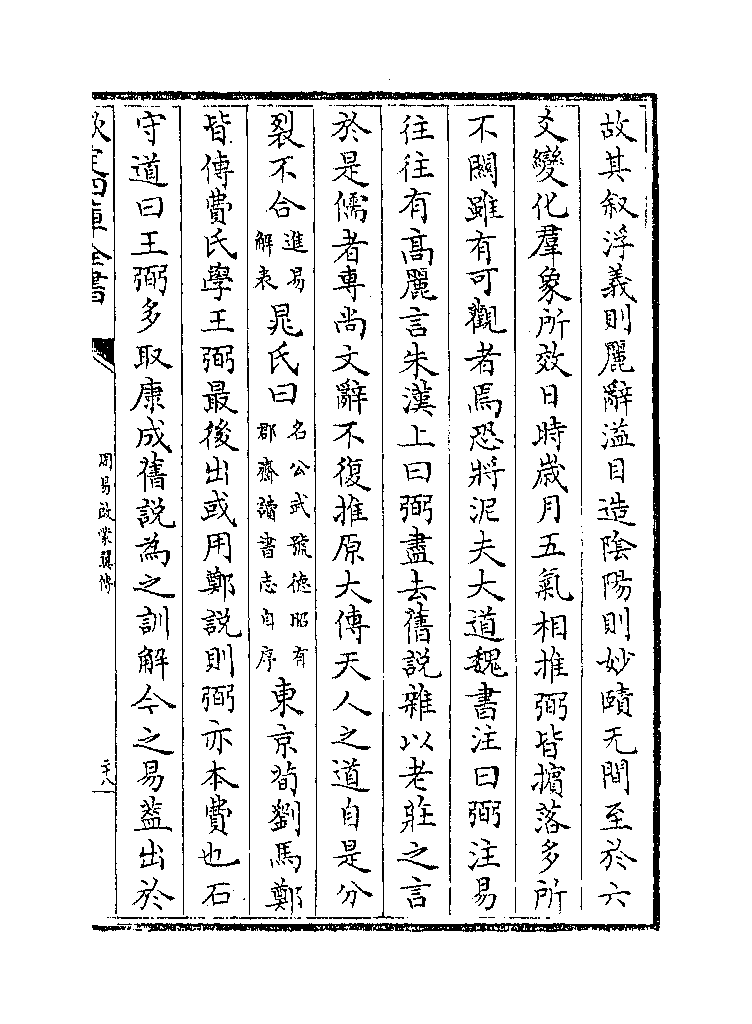 故其叙浮義則麗辭溢目造隂陽則妙賾无間至於六
爻變化羣象所效日時歲月五氣相推弼皆擯落多所
不闗雖有可觀者焉恐將泥夫大道魏書注曰弼注易
往往有髙麗言朱漢上曰弼盡去舊説雜以老莊之言
於是儒者専尚文辭不復推原大傳天人之道自是分
裂不合進易解表晁氏曰名公武號徳昭有郡齋讀書志自序東京荀劉馬鄭
皆傳費氏學王弼最後出或用鄭説則弼亦本費也石
守道曰王弼多取康成舊説為之訓解今之易葢出於
欽定四庫全書
周易啟蒙翼傳
二十八